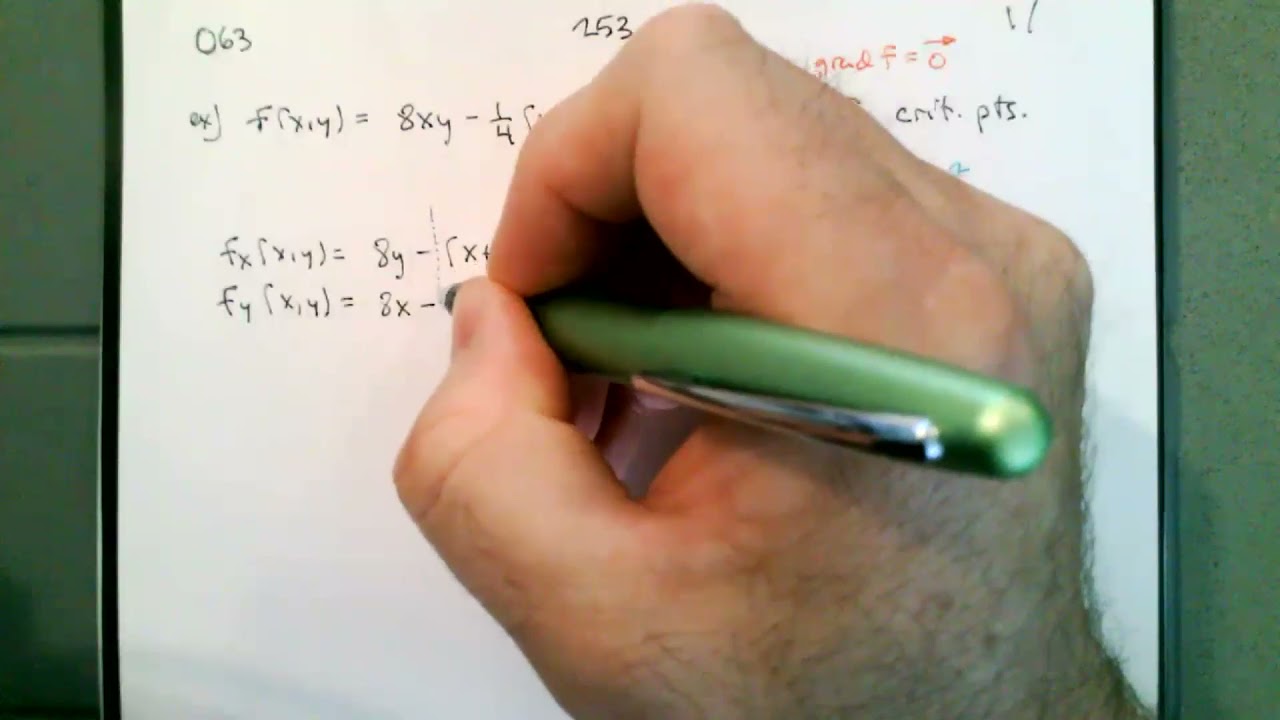 063 253 1/
grad f = 0⃗
ex) f(x,y) = 8xy - 1/4 ( crit. pts.
2
fx(x,y) = 8y - (x+
fy(x,y) = 8x -